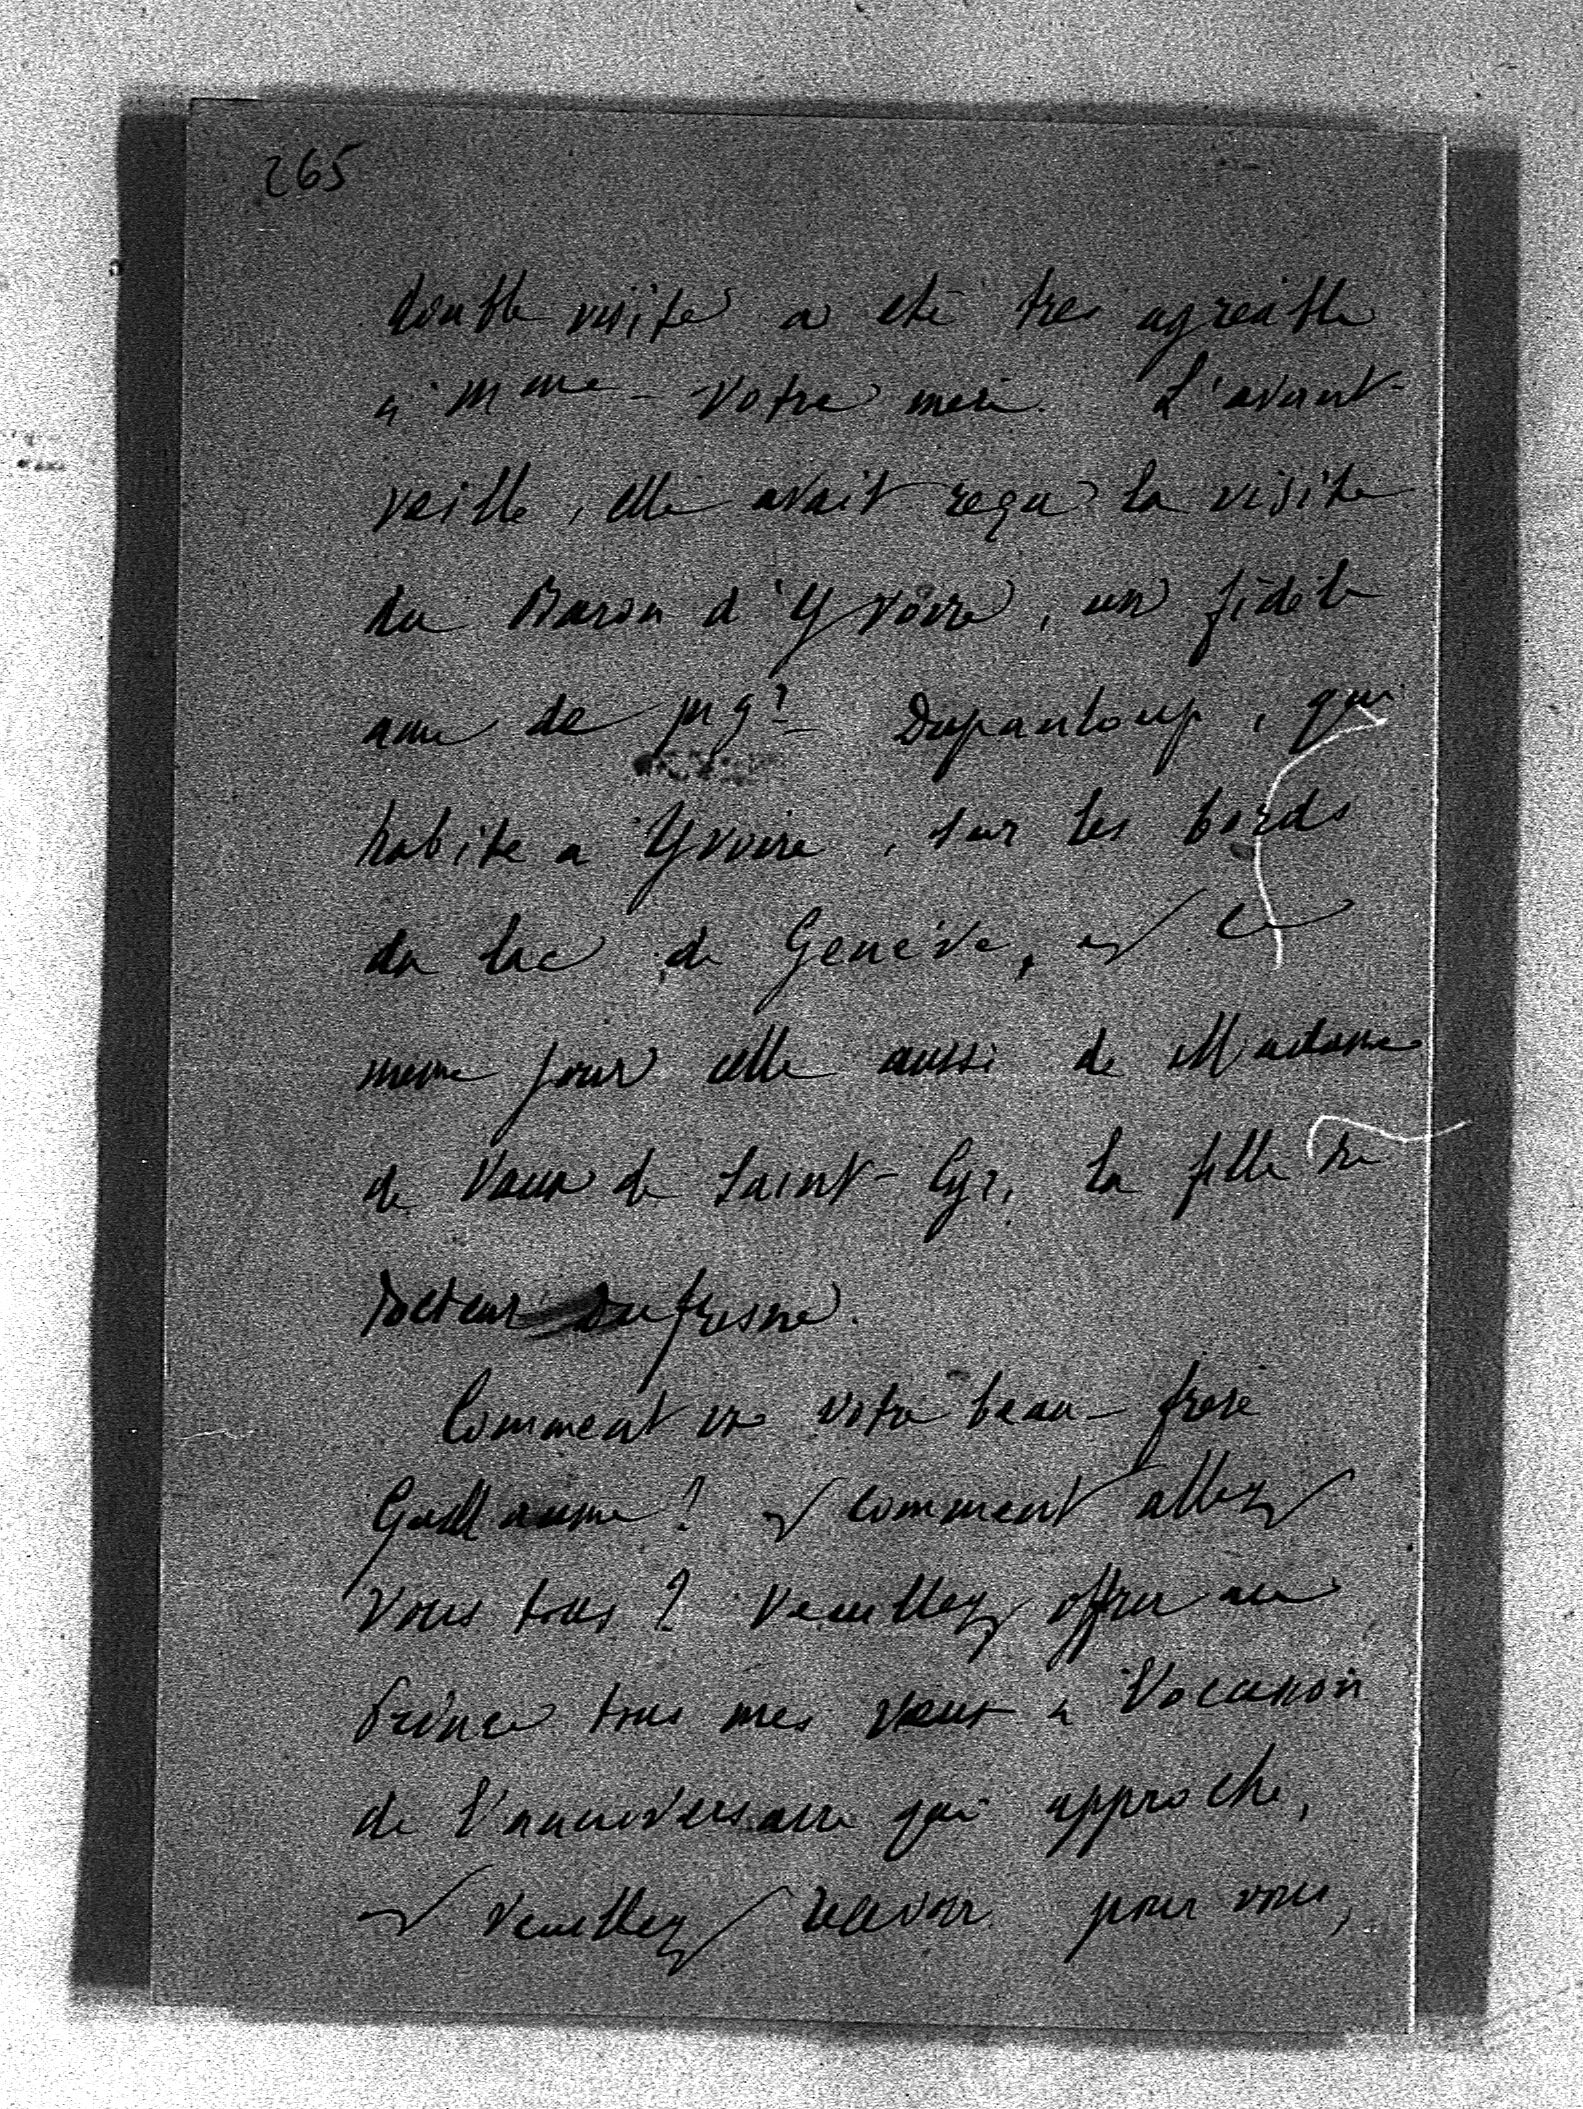 265
double visite a été très agréable
à Mme votre mère. L'avant-
veille, elle avait reçu la visite
du Baron d'Yvoire, un fidèle
ami de Mgr Dupanloup, qui
habite à Yvoire, sur les bords
du lac de Genève, et le
même jour celle aussi de Madame
de Vaux de Saint-Cyr, la fille du
Docteur Dufresne.
Comment va votre beau-frère
Guillaume? et comment allez
vous tous? Veuillez offrir au
Prince tous mes vœux à l'occasion
de l'anniversaire qui approche,
et veuillez recevoir pour vous,